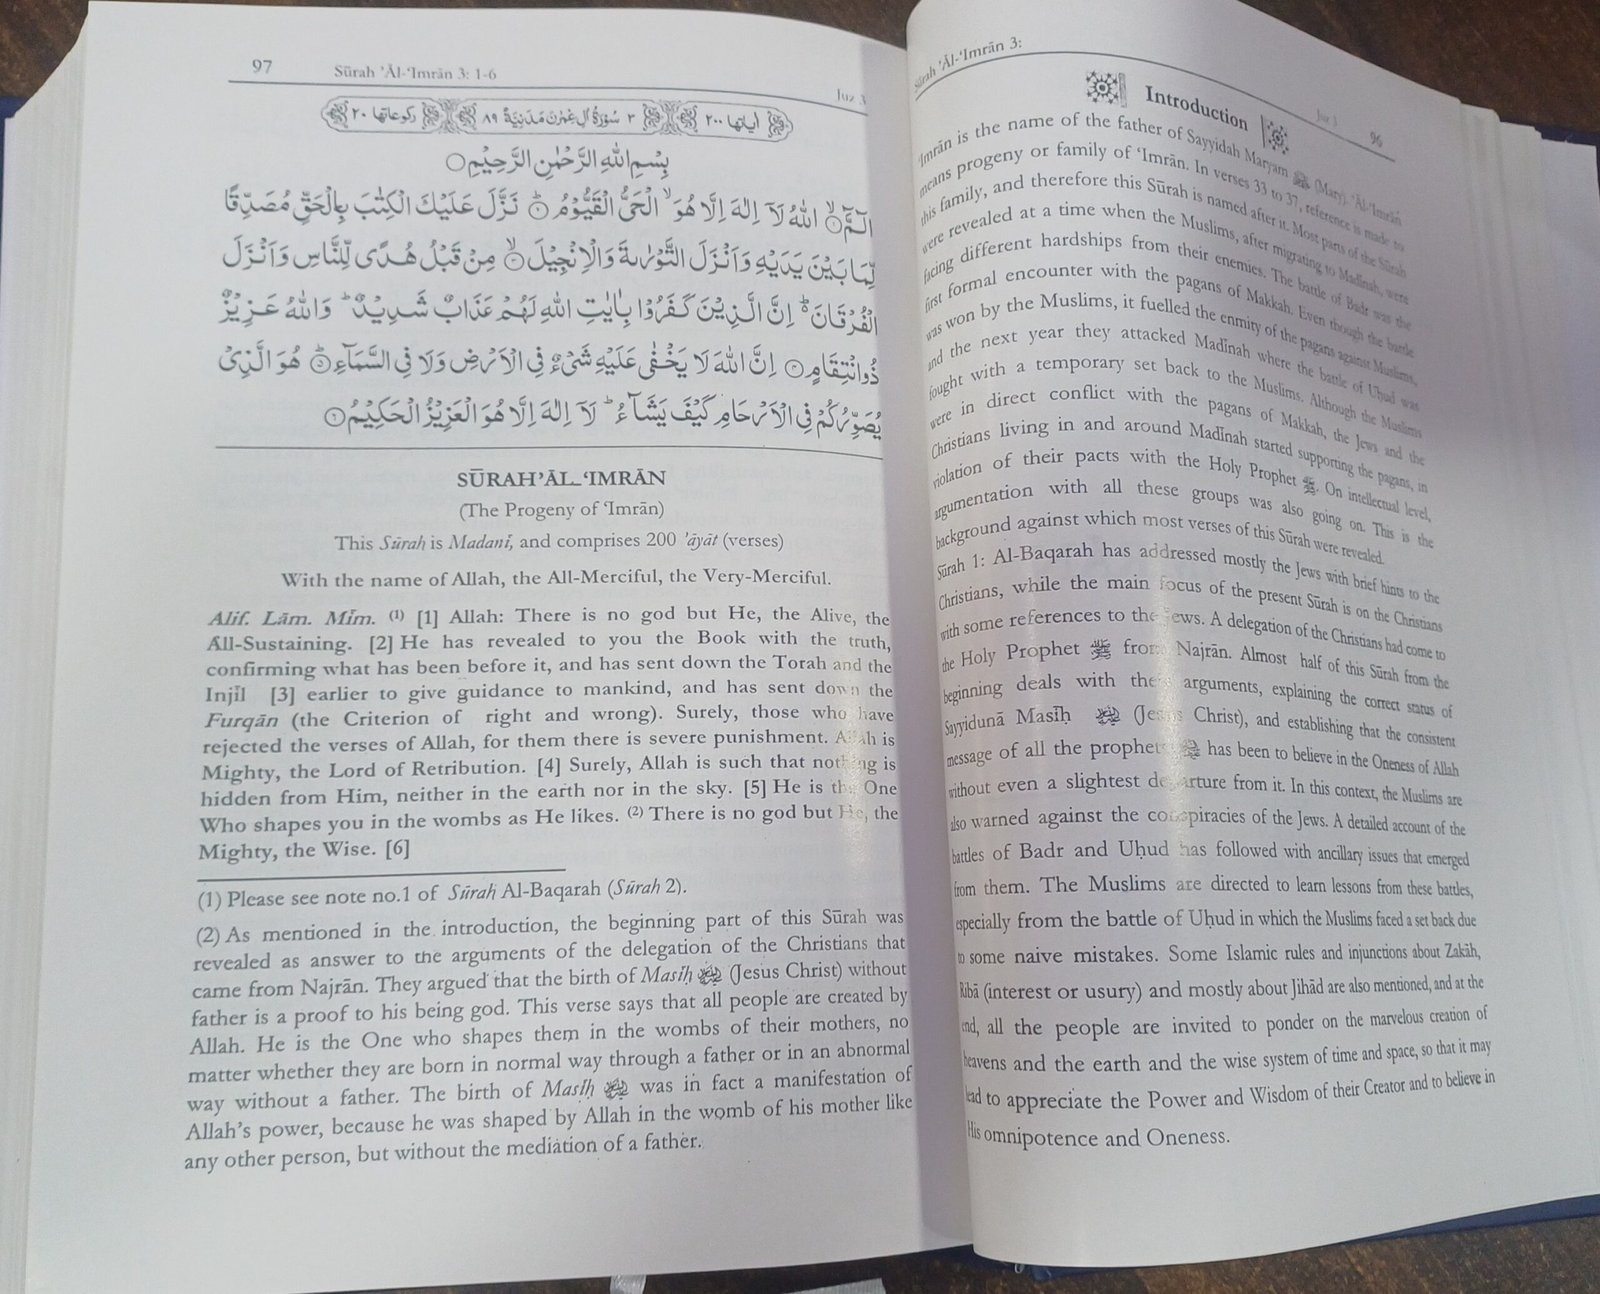 Sūrah 'Āl-'Imrān 3:
Juz 3
96
Introduction
'Imrān is the name of the father of Sayyidah Maryam (Mary). 'Āl-'Imrān
means progeny or family of 'Imrān. In verses 33 to 37, reference is made to
this family, and therefore this Sūrah is named after it. Most parts of the Sūrah
were revealed at a time when the Muslims, after migrating to Madīnah, were
facing different hardships from their enemies. The battle of Badr was the
first formal encounter with the pagans of Makkah. Even though the battle
was won by the Muslims, it fuelled the enmity of the pagans against Muslims,
and the next year they attacked Madīnah where the battle of Uḥud was
fought with a temporary set back to the Muslims. Although the Muslims
were in direct conflict with the pagans of Makkah, the Jews and the
Christians living in and around Madīnah started supporting the pagans, in
violation of their pacts with the Holy Prophet ﷺ. On intellectual level,
argumentation with all these groups was also going on. This is the
background against which most verses of this Sūrah were revealed.
Sūrah 1: Al-Baqarah has addressed mostly the Jews with brief hints to the
Christians, while the main focus of the present Sūrah is on the Christians
with some references to the Jews. A delegation of the Christians had come to
the Holy Prophet ﷺ from Najrān. Almost half of this Sūrah from the
beginning deals with their arguments, explaining the correct status of
Sayyidunā Masīḥ (Jesus Christ), and establishing that the consistent
message of all the prophets has been to believe in the Oneness of Allah
without even a slightest departure from it. In this context, the Muslims are
also warned against the conspiracies of the Jews. A detailed account of the
battles of Badr and Uḥud has followed with ancillary issues that emerged
from them. The Muslims are directed to learn lessons from these battles,
especially from the battle of Uḥud in which the Muslims faced a set back due
to some naive mistakes. Some Islamic rules and injunctions about Zakāh,
Ribā (interest or usury) and mostly about Jihād are also mentioned, and at the
end, all the people are invited to ponder on the marvelous creation of
heavens and the earth and the wise system of time and space, so that it may
lead to appreciate the Power and Wisdom of their Creator and to believe in
His omnipotence and Oneness.
97
Sūrah 'Āl-'Imrān 3: 1-6
Juz 3
اٰیاتها ٢٠٠ ٣ سُوْرَةُ اٰلِ عِمْرٰنَ مَدَنِيَّةٌ ٨٩ ركوعاتها ٢٠
بِسْمِ اللهِ الرَّحْمٰنِ الرَّحِيْمِ○
الٓمّٓۙ۝۱ اللهُ لَاۤ اِلٰهَ اِلَّا هُوَۙ الْحَيُّ الْقَيُّوْمُؕ۝۲ نَزَّلَ عَلَيْكَ الْكِتٰبَ بِالْحَقِّ مُصَدِّقًا
لِّمَا بَيْنَ يَدَيْهِ وَاَنْزَلَ التَّوْرٰىةَ وَالْاِنْجِيْلَۙ۝۳ مِنْ قَبْلُ هُدًى لِّلنَّاسِ وَاَنْزَلَ
الْفُرْقَانَ۬ؕ اِنَّ الَّذِيْنَ كَفَرُوْا بِاٰيٰتِ اللهِ لَهُمْ عَذَابٌ شَدِيْدٌؕ وَاللهُ عَزِيْزٌ
ذُو انْتِقَامٍ۝۴ اِنَّ اللهَ لَا يَخْفٰى عَلَيْهِ شَيْءٌ فِي الْاَرْضِ وَلَا فِي السَّمَآءِؕ۝۵ هُوَ الَّذِيْ
يُصَوِّرُكُمْ فِي الْاَرْحَامِ كَيْفَ يَشَآءُؕ لَاۤ اِلٰهَ اِلَّا هُوَ الْعَزِيْزُ الْحَكِيْمُ۝۶
SŪRAH 'ĀL-'IMRĀN
(The Progeny of 'Imrān)
This Sūrah is Madanī, and comprises 200 'āyāt (verses)
With the name of Allah, the All-Merciful, the Very-Merciful.
Alif. Lām. Mīm. (1) [1] Allah: There is no god but He, the Alive, the
All-Sustaining. [2] He has revealed to you the Book with the truth,
confirming what has been before it, and has sent down the Torah and the
Injīl [3] earlier to give guidance to mankind, and has sent down the
Furqān (the Criterion of right and wrong). Surely, those who have
rejected the verses of Allah, for them there is severe punishment. Allah is
Mighty, the Lord of Retribution. [4] Surely, Allah is such that nothing is
hidden from Him, neither in the earth nor in the sky. [5] He is the One
Who shapes you in the wombs as He likes. (2) There is no god but He, the
Mighty, the Wise. [6]
(1) Please see note no.1 of Sūrah Al-Baqarah (Sūrah 2).
(2) As mentioned in the introduction, the beginning part of this Sūrah was
revealed as answer to the arguments of the delegation of the Christians that
came from Najrān. They argued that the birth of Masīḥ (Jesus Christ) without
father is a proof to his being god. This verse says that all people are created by
Allah. He is the One who shapes them in the wombs of their mothers, no
matter whether they are born in normal way through a father or in an abnormal
way without a father. The birth of Masīḥ was in fact a manifestation of
Allah's power, because he was shaped by Allah in the womb of his mother like
any other person, but without the mediation of a father.